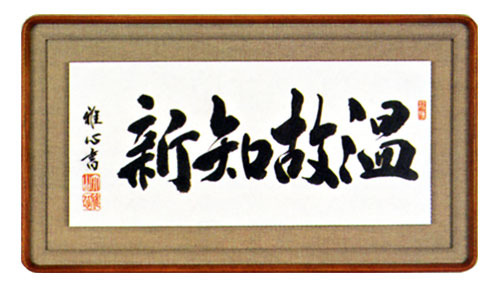 温故知新
雅心書